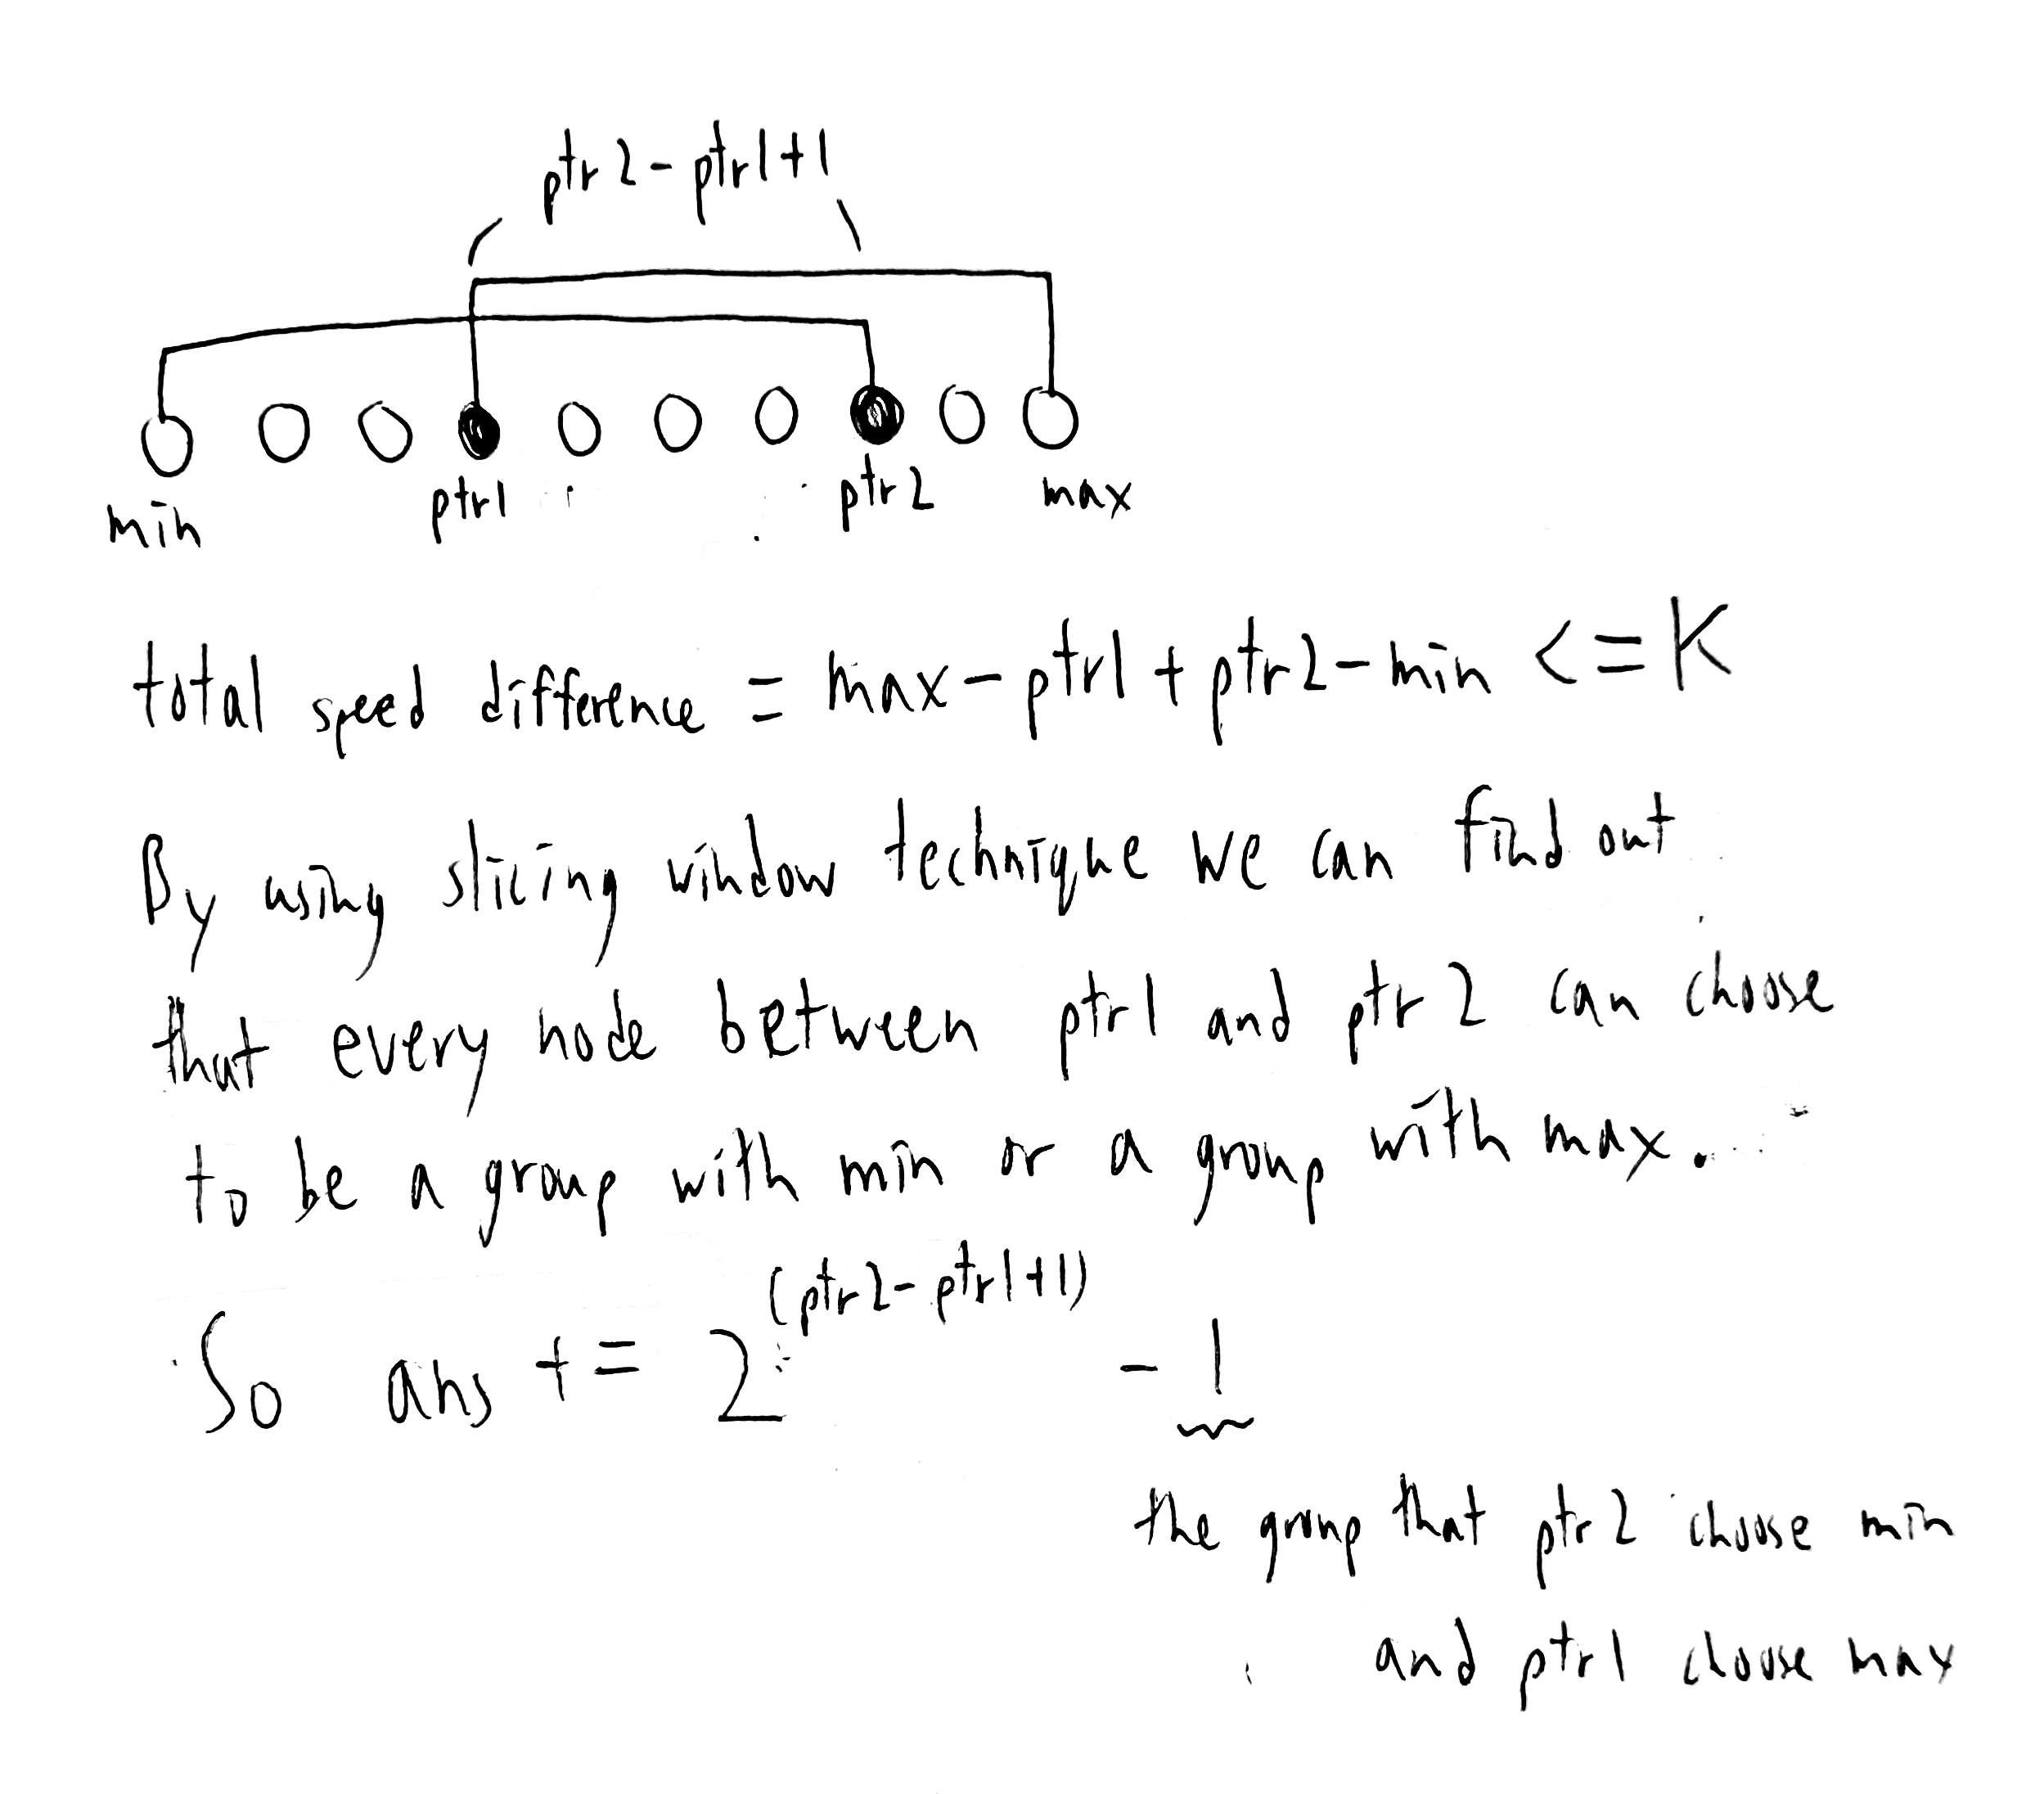 ptr2-ptr1+1
min ptr1 ptr2 max
total speed difference = max-ptr1+ptr2-min <=K
By using slicing window technique we can find out
that every node between ptr1 and ptr2 can choose
to be a group with min or a group with max.
(ptr2-ptr1+1)
So ans += 2 - 1
the group that ptr2 choose min
and ptr1 choose max